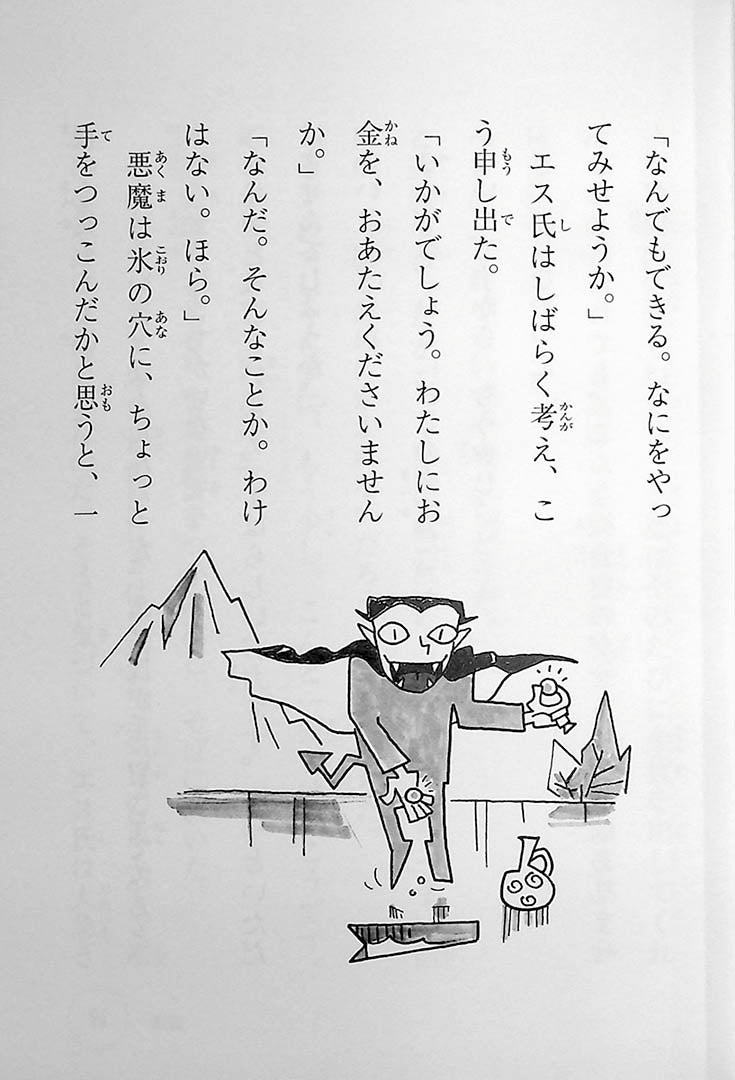 「なんでもできる。なにをやっ
てみせようか。」
エス氏はしばらく考え、こ
う申し出た。
「いかがでしょう。わたしにお
金を、おあたえくださいません
か。」
「なんだ。そんなことか。わけ
はない。ほら。」
悪魔は氷の穴に、ちょっと
手をつっこんだかと思うと、一